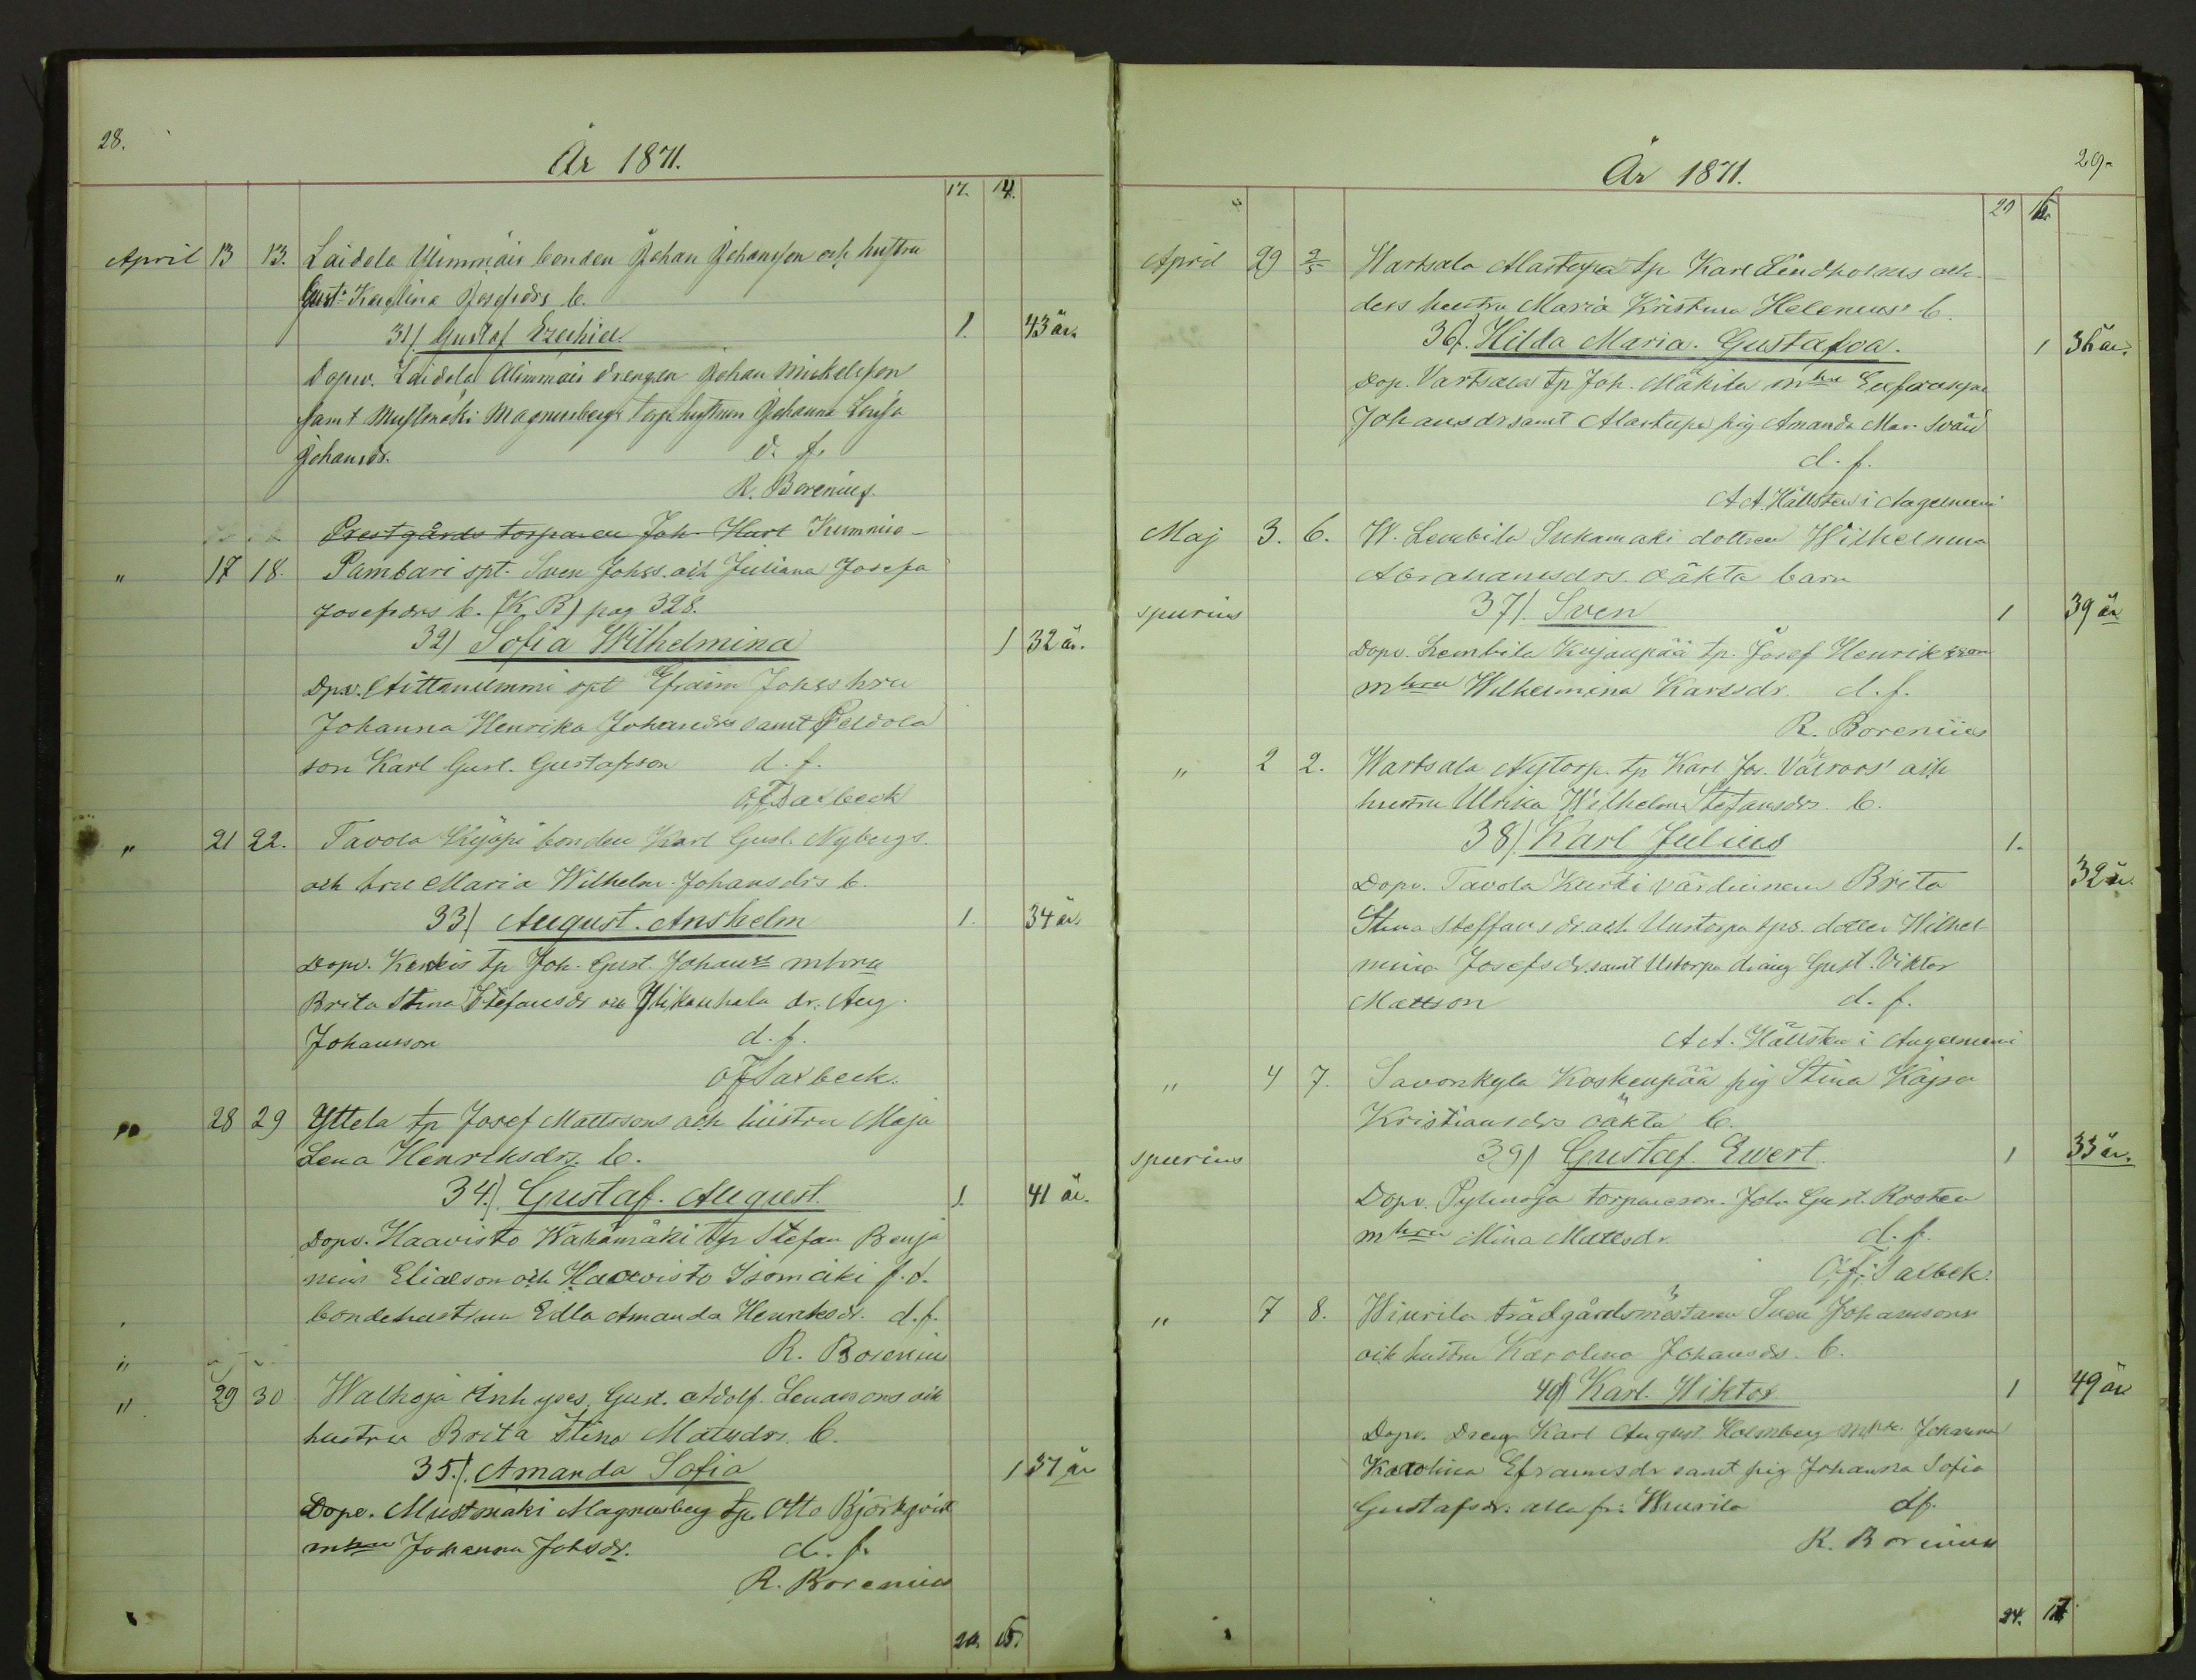 28.
År 1871.
17. 14.
April 13 13. Laidola Ylimmäis bonden Johan Johansson och hustru
Gust:a Karolina Josefsdrs b.
31) Gustaf Ezechiel. 1. 43 år.
Dopv. Laidola Alimmais drengen Johan Mickelsson
samt Mustmäki Magnusbergs torp.hustrun Johanna Lovisa
Johansdr. d. f.
R. Borenius.
Prestgårds torparen Joh. Karl
" 17 18. Pambari spt. Sven Johss. och Juliana Josefa
Josefsdrs b. (K B) pag 328.
32) Sofia Wilhelmina 1 32 år.
Dpv. Aittanummi spt Efraim Johss hru
Johanna Henrika Johansdr samt Peldola
son Karl Gust. Gustafsson d. f.
O.F. Saxbeck
" 21 22. Tavola Kyöpi bonden Karl Gust. Nybergs.
och hru Maria Wilhelm. Johansdrs b.
33) August. Anshelm 1. 34 år.
Dopv. tp Joh. Gust. Johans mhru
Brita Stina Stefansdr och dr. Aug.
Johansson d. f.
O F Saxbeck.
" 28 29 Yttela tp Josef Mattssons och hustru Maja
Lena Henriksdrs. b.
34.) Gustaf. August. 1. 41 år.
Dopv. Haavisto Wähämäki tp Stefan Benja
min Eliasson och Haavisto Isomäki f.d.
bondehustrun Edla Amanda Henriksdr. d.f.
R. Borenius
" 29 30 Walkoja Inhyses. Gust. Adolf. Lenarsons och
hustru Brita Stina Matsdrs. b.
35.). Amanda Sofia 1 37 år
Dopv. Mustmaki Magnusberg tp. Otto Björkqvist
mhru Johanna Johsdr. d. f.
R. Borenius
20. 15.
År 1871.
29.
20 15.
April 29 2/5 Wartsala Alastupa tp Karl Lindholms och
ders hustru Maria Kristina Helenius' b.
36). Hilda Maria. Gustafva. 1 36 år.
Dop. Vartsala tp Joh. Mäkila mhru Eufrosyne
Johansdr samt Alastupa pig Amanda Mar. Svärd
d. f.
A A. Hällsten i Angelniemi
Maj 3. 6. W. Lembila Sukamaki dottren Wilhelmina
Abrahamsdrs. oäkta barn
spurius 37). Sven 1 39 år
Dopv. Lembila Kujanpää tp. Josef Henriksson
mhru Wilhelmina Karlsdr. d. f.
R. Borenius
" 2 2. Wartsala Nytorp. tp Karl Jos. Valroos' och
hustru Ulrika Wilhelm. Stefansdrs. b.
38). Karl Julius 1. 32 år.
Dopv. Tavola Kurki värdinnan Brita
Stina Steffansdr. och Uustorpa tps. dotter Wilhel
mina Josefsdr. samt Ustorpa dräng Gust. Viktor
Mattson d. f.
A A. Hällsten i Angelniemi
" 4 7. Savonkyla Koskenpää pig Stina Kajsa
Kristiansdrs oäkta b.
spurius 39) Gustaf. Ewert. 1 33 år.
Dopv. Pyhnoja torpareson. Joh. Gust. Rosten
mhru Mina Mattsdr. d. f.
O.F. Saxbek.
" 7 8. Wiurila trädgårdsmästaren Sven Johansons
och hustru Karolina Johansdrs. b.
40) Karl. Wiktor 1 49 år
Dopv. Dreng Karl August Holmberg mhru. Johanna
Karolina Efraimsdr samt pig Johanna Sofia
Gustafsdr. alla fr. Wiurila df.
R. Borenius
24. 17